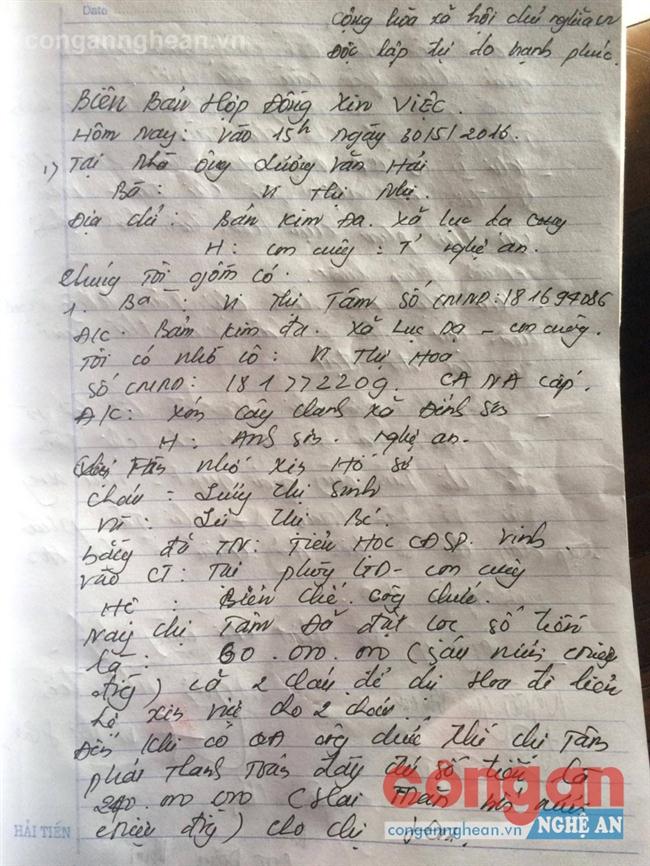 Date
congannghean.vn
cộng hòa xã hội chủ nghĩa VN
Độc lập tự do hạnh phúc.
Biên Bản Hợp Đồng Xin Việc.
Hôm nay: vào 15h ngày 30/5/2016.
1) Tại nhà ông Lương Văn Hải
Bà: Vi Thị Nhị.
Địa chỉ: Bản Kim Đa. xã Lục Dạ
H: con cuông: T' Nghệ an.
Chúng Tôi gồm có.
1. Bà - Vi Thị Tâm Số CMND: 181694086
Đ/C. Bản Kim Đa. xã Lục Dạ - con cuông.
Tôi có nhờ cô: Vi Thị Hoa
Số CMND: 181772209. CA NA cấp.
Đ/C: Xóm cây chanh xã Đỉnh Sơn
H: Anh Sơn. Nghệ an-
nhờ xin Hồ Sơ
cháu = Thị Sinh
Lữ Thị Bé.
bằng đã TN: Tiểu Học CĐSP. Vinh.
vào CT: Tại phòng GD- con cuông
Hệ: Biên chế. công chức.
Nay chị Tâm Đã đặt cọc số tiền
là: 60.000.000 (sáu mươi triệu
đồng) cả 2 cháu để chị Hoa đi liên
hệ xin việc cho 2 cháu.
Đến khi có QĐ công chức thì chị Tâm
phải thanh toán đầy đủ số tiền là
240.000.000 (Hai trăm bốn mươi
triệu đồng) cho chị
HẢI TIẾN
côngan
congannghean.vn
NGHỆ AN